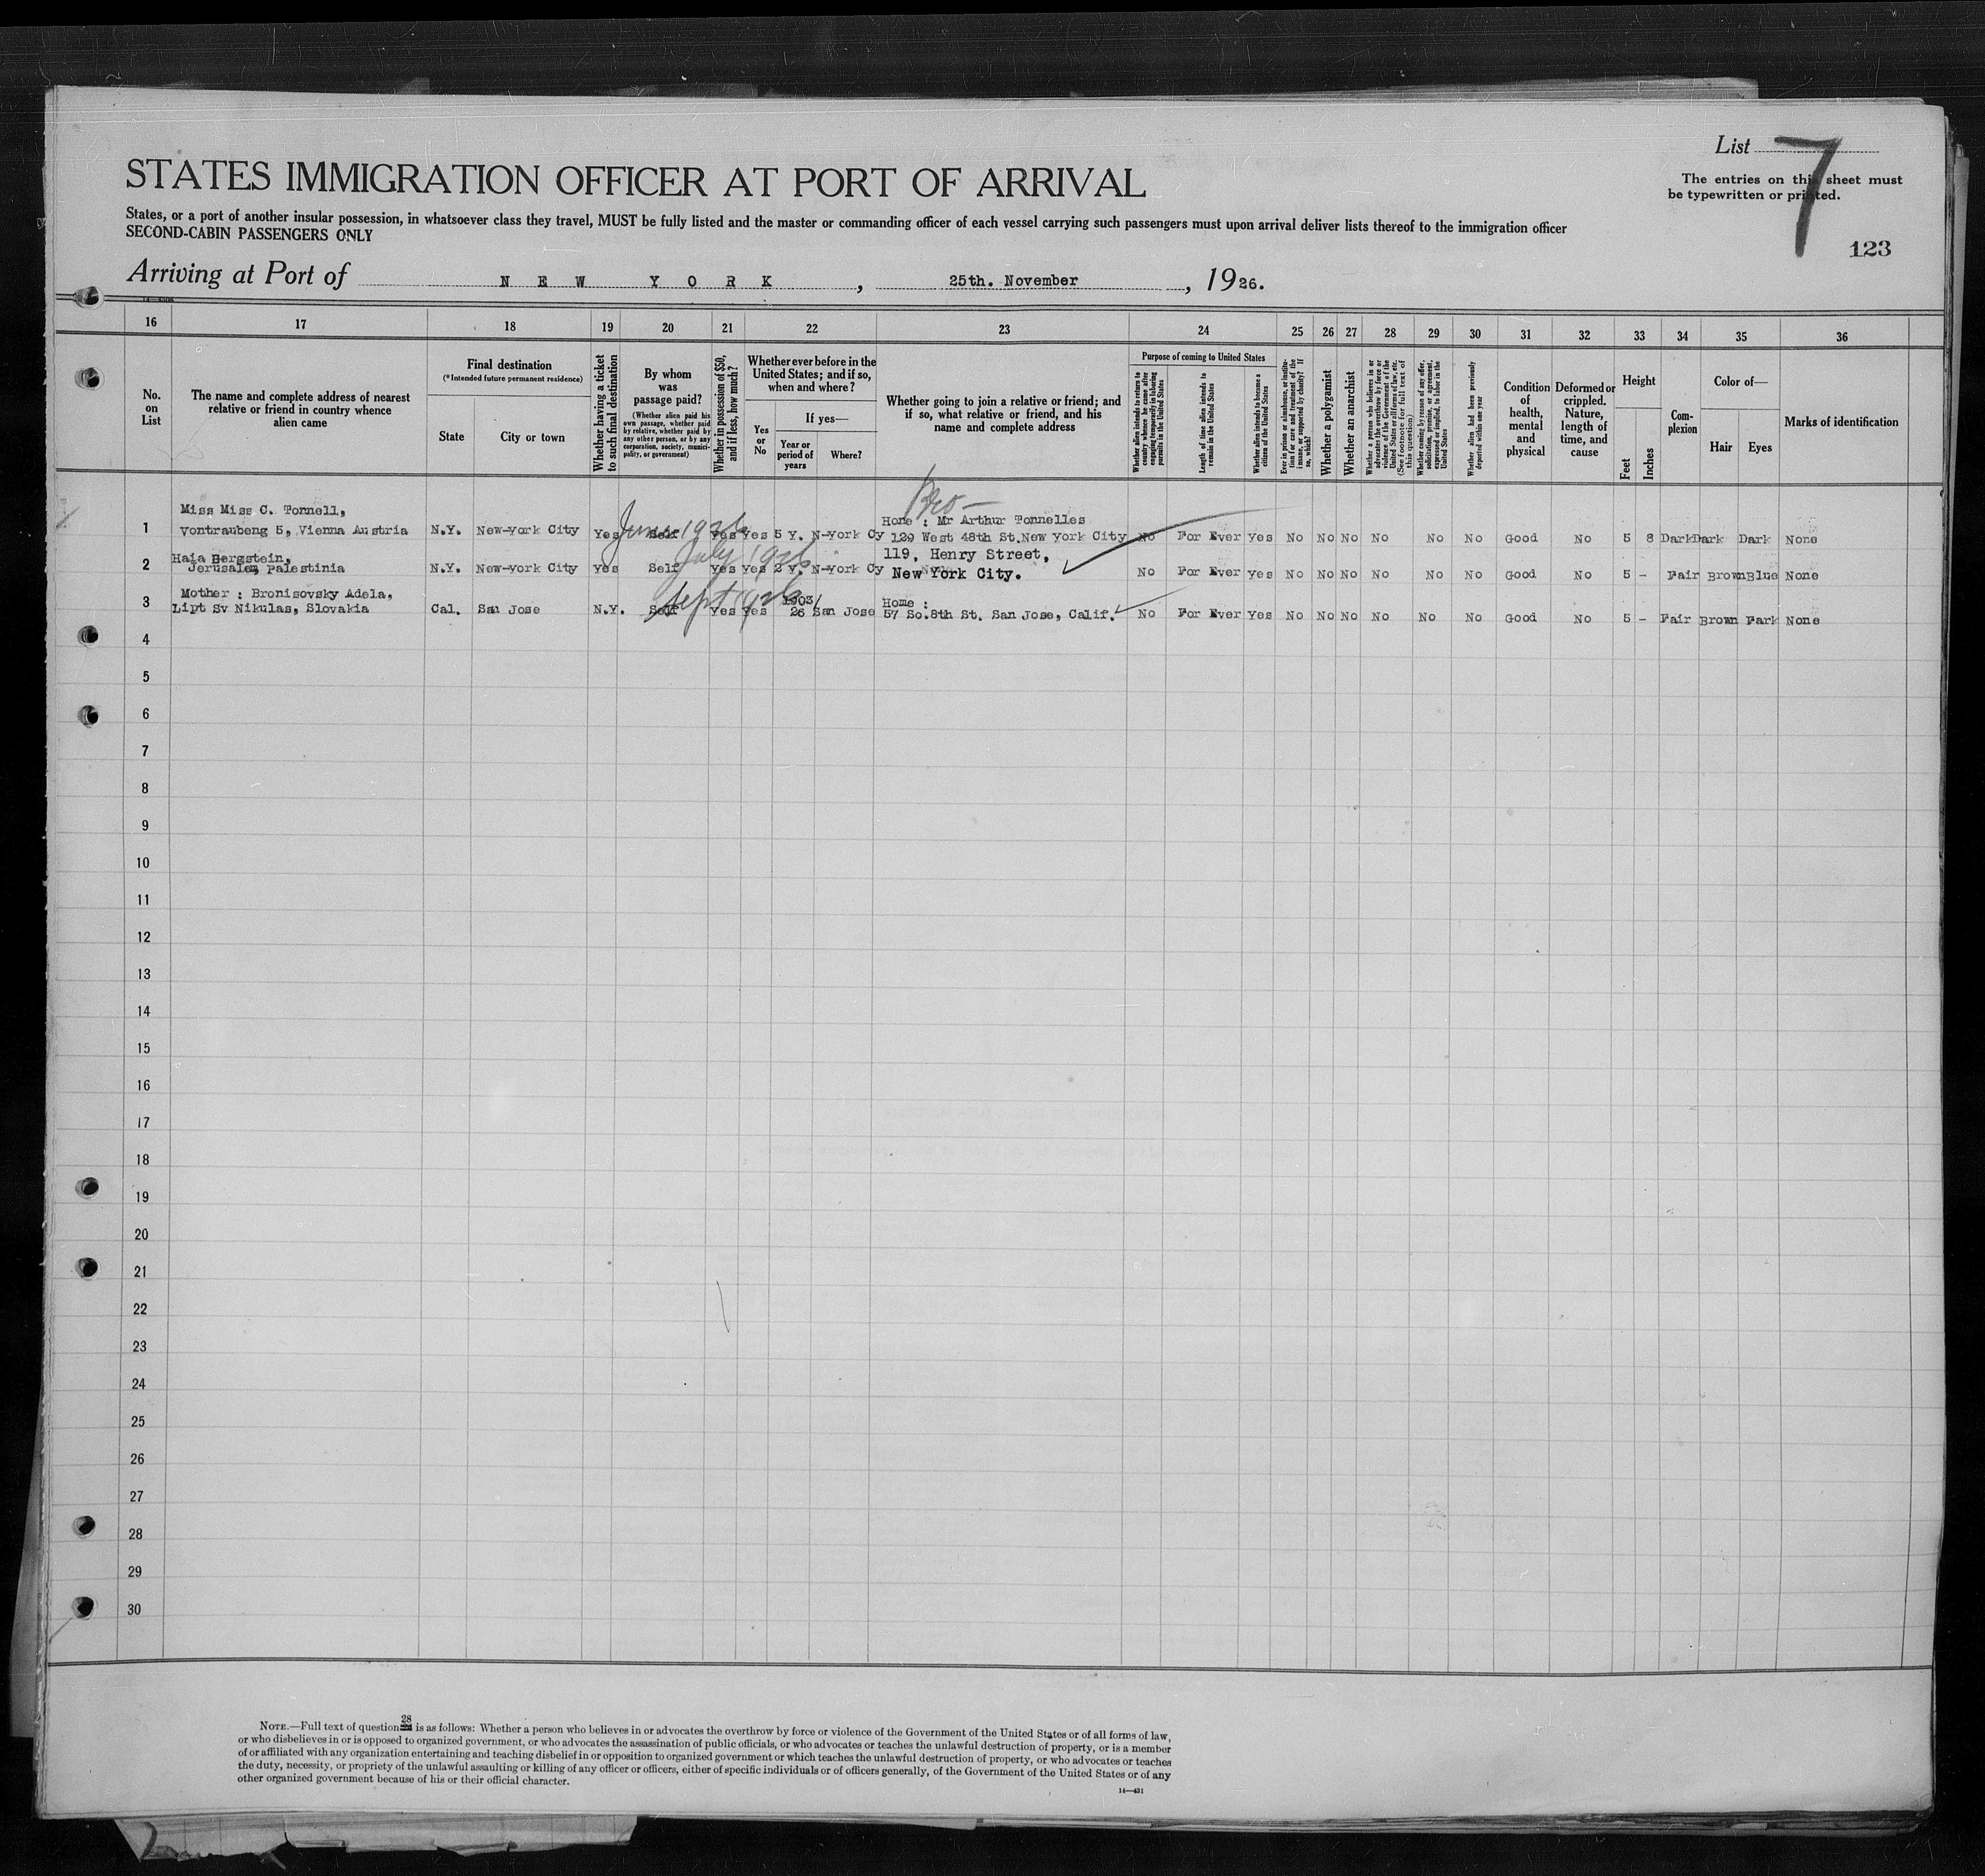 List 7
STATES IMMIGRATION OFFICER AT PORT OF ARRIVAL
The entries on this sheet must
be typewritten or printed.
States, or a port of another insular possession, in whatsoever class they travel, MUST be fully listed and the master or commanding officer of each vessel carrying such passengers must upon arrival deliver lists thereof to the immigration officer
SECOND-CABIN PASSENGERS ONLY
123
Arriving at Port of NEW YORK, 25th. November, 1926.
16 17 18 19 20 21 22 23 24 25 26 27 28 29 30 31 32 33 34 35 36
No. on List
The name and complete address of nearest relative or friend in country whence alien came
Final destination
(*Intended future permanent residence)
State
City or town
Whether having a ticket to such final destination
By whom was passage paid?
(Whether alien paid his own passage, whether paid by relative, whether paid by any other person, or by any corporation, society, municipality, or government)
Whether in possession of $50, and if less, how much?
Whether ever before in the United States; and if so, when and where?
Yes or No
If yes—
Year or period of years
Where?
Whether going to join a relative or friend; and if so, what relative or friend, and his name and complete address
Purpose of coming to United States
Whether alien intends to return to country whence he came after engaging temporarily in laboring pursuits in the United States
Length of time alien intends to remain in the United States
Whether alien intends to become a citizen of the United States
Ever in prison or almshouse, or institution for care and treatment of the insane, or supported by charity? If so, which?
Whether a polygamist
Whether an anarchist
Whether a person who believes in or advocates the overthrow by force or violence of the Government of the United States or all forms of law, etc. (See footnote for full text of this question)
Whether coming by reason of any offer, solicitation, promise, or agreement, expressed or implied, to labor in the United States
Whether alien had been previously deported within one year
Condition of health, mental and physical
Deformed or crippled. Nature, length of time, and cause
Height
Feet
Inches
Complexion
Color of—
Hair
Eyes
Marks of identification
Bro—
June 1926
July 1926
Sept 1926
1 Miss Miss C. Tonnell,
Vontraubeng 5, Vienna Austria N.Y. New-York City Yes Self Yes Yes 5 Y. N-York Cy Home : Mr Arthur Tonnelles
129 West 48th St.New York City No For Ever Yes No No No No No No Good No 5 8 Dark Dark Dark None
2 Haia Bergstein,
Jerusalem, Palestinia N.Y. New-York City Yes Self Yes Yes 2 Y. N-York Cy 119, Henry Street,
New York City. No For Ever Yes No No No No No No Good No 5 - Fair Brown Blue None
3 Mother : Bronisovsky Adela,
Lipt Sv Nikulas, Slovakia Cal. San Jose N.Y. Self Yes Yes 1903/
26 San Jose Home :
57 So.8th St. San Jose, Calif. No For Ever Yes No No No No No No Good No 5 - Fair Brown Park None
4
5
6
7
8
9
10
11
12
13
14
15
16
17
18
19
20
21
22
23
24
25
26
27
28
29
30
NOTE.—Full text of question 28 is as follows: Whether a person who believes in or advocates the overthrow by force or violence of the Government of the United States or of all forms of law,
or who disbelieves in or is opposed to organized government, or who advocates the assassination of public officials, or who advocates or teaches the unlawful destruction of property, or is a member
of or affiliated with any organization entertaining and teaching disbelief in or opposition to organized government or which teaches the unlawful destruction of property, or who advocates or teaches
the duty, necessity, or propriety of the unlawful assaulting or killing of any officer or officers, either of specific individuals or of officers generally, of the Government of the United States or of any
other organized government because of his or their official character.
14—431